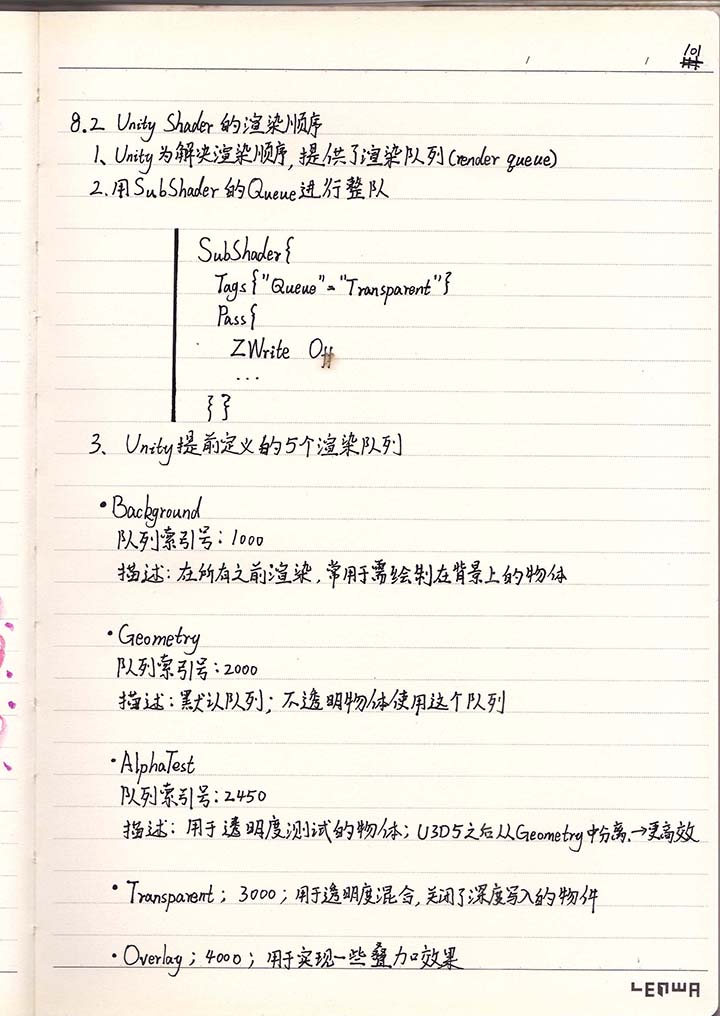 101
8.2 Unity Shader 的渲染顺序
1、Unity为解决渲染顺序,提供了渲染队列(render queue)
2.用SubShader的Queue进行整队
SubShader{
Tags{"Queue"="Transparent"}
Pass{
ZWrite Off
...
}}
3、Unity提前定义的5个渲染队列
·Background
队列索引号:1000
描述:在所有之前渲染,常用于需绘制在背景上的物体
·Geometry
队列索引号:2000
描述:默认队列;不透明物体使用这个队列
·AlphaTest
队列索引号:2450
描述:用于透明度测试的物体;U3D5之后从Geometry中分离.→更高效
·Transparent;3000;用于透明度混合,关闭了深度写入的物件
·Overlay;4000;用于实现一些叠加效果